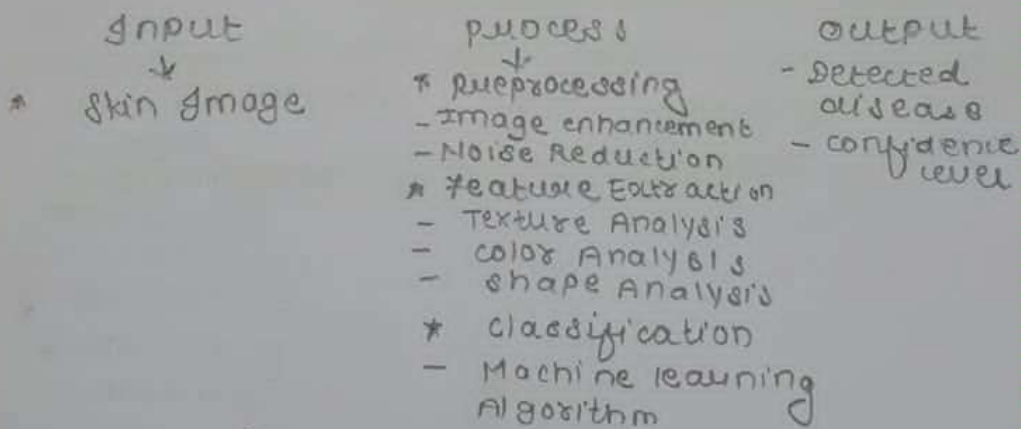 Input
↓
* Skin Image
process
↓
* Preprocessing
- Image enhancement
- Noise Reduction
* Feature Extraction
- Texture Analysis
- color Analysis
- shape Analysis
* classification
- Machine learning
Algorithm
output
- Detected
disease
- confidence
level